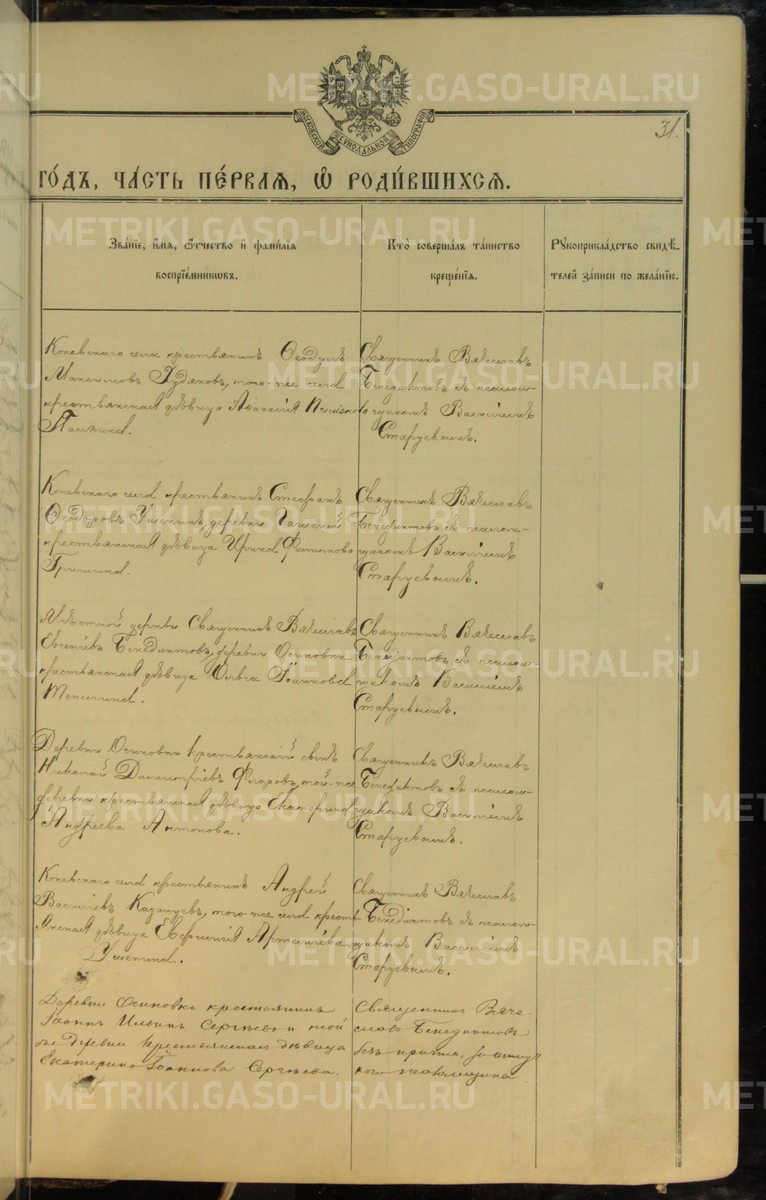 METRIKI.GASO-URAL.RU
МОСКОВСКОЙ СѴНОДАЛЬНОЙ ТИПОГРАФІИ
31.
ГОДЪ, ЧАСТЬ ПЕ́РВАЯ, Ѡ РОДИ́ВШИХСЯ.
Зва́нїе, и́мя, ѻ҆́тчество и҆ фами́лїя
воспрїе́мникѡвъ.
Кто̀ соверша́лъ та́инство
креще́нїя.
Рꙋкоприкла́дство свидѣ́-
телей за́писи по жела́нїю.
Коневскаго села крестьянинъ Ѳеодулъ
того-же села
крестьянская дѣвица Афанасія
Священникъ Вячеславъ
Бенедиктовъ съ псалом-
щикомъ Василіемъ
Старцевымъ.
Коневскаго села крестьянинъ Стефанъ
Ѳеодоровъ Ушенинъ, деревни
крестьянская дѣвица Ирина Филиппова
Гришина.
Священникъ Вячеславъ
Бенедиктовъ съ псалом-
щикомъ Василіемъ
Старцевымъ.
Мѣстной церкви Священникъ Вячеславъ
Евгеніевъ Бенедиктовъ, деревни Осиновки
крестьянская дѣвица Ольга Іоаннова
Священникъ Вячеславъ
Бенедиктовъ съ псалом-
щикомъ Василіемъ
Старцевымъ.
Деревни Осиновки крестьянскій сынъ
Николай Димитріевъ Фларовъ, той-же
деревни крестьянская дѣвица Екатерина
Андреева Антонова.
Священникъ Вячеславъ
Бенедиктовъ съ псалом-
щикомъ Василіемъ
Старцевымъ.
Коневскаго села крестьянинъ Андрей
Васильевъ Казанцевъ, того-же села кресть-
янская дѣвица Евфросинія Артеміева
Ушенина.
Священникъ Вячеславъ
Бенедиктовъ съ псалом-
щикомъ Василіемъ
Старцевымъ.
Деревни Осиновки крестьянинъ
Іоаннъ Ильинъ Сергѣевъ и той
же деревни крестьянская дѣвица
Екатерина Іоаннова Сергѣева.
Священникъ Вяче-
славъ Бенедиктовъ
безъ причта, за
псаломщика